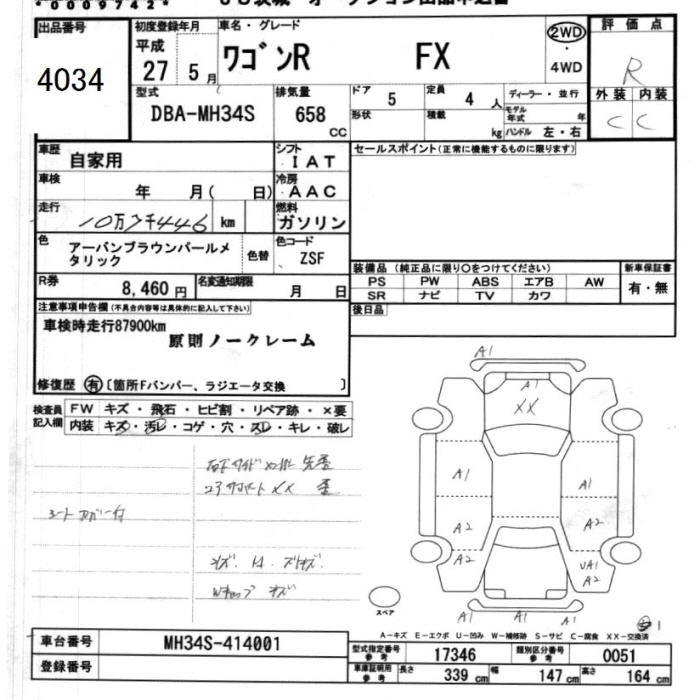 *00097427*
出品番号
4034
初度登録年月
平成
27 5月
車名・グレード
ワゴンR FX
2WD
・
4WD
評価点
R
型式
DBA-MH34S
排気量
658
cc
ドア
5
定員
4 人
ディーラー・並行
形状
積載
kg
モデル年式
年
ハンドル 左・右
外装 内装
C C
車歴
自家用
シフト
IAT
セールスポイント(正常に機能するものに限ります)
車検
年 月( 日)
冷房
AAC
走行
10万3千446 km
燃料
ガソリン
色
アーバンブラウンパールメタリック
色替
色コード
ZSF
装備品 (純正品に限り○をつけてください)
PS PW ABS エアB AW
SR ナビ TV カワ
新車保証書
有・無
R券
8,460 円
名変通知期限
月 日
後日品
注意事項申告欄(不具合内容等は具体的に記入して下さい)
車検時走行87900km
原則ノークレーム
修復歴 有 [箇所Fバンパー、ラジエータ交換 ]
検査員
記入欄
FW キズ・飛石・ヒビ割・リペア跡・×要
内装 キズ・汚レ・コゲ・穴・スレ・キレ・破レ
A1
A1
XX
A1
A1
A2
A2
A2
UA1
A2
A1
A1
A1
スペア
A-キズ E-エクボ U-凹み W-補修跡 S-サビ C-腐食 XX-交換済
車台番号
MH34S-414001
登録番号
型式指定番号
参考
17346
類別区分番号
参考
0051
車庫証明用
参考
長さ
339 cm
幅
147 cm
高さ
164 cm